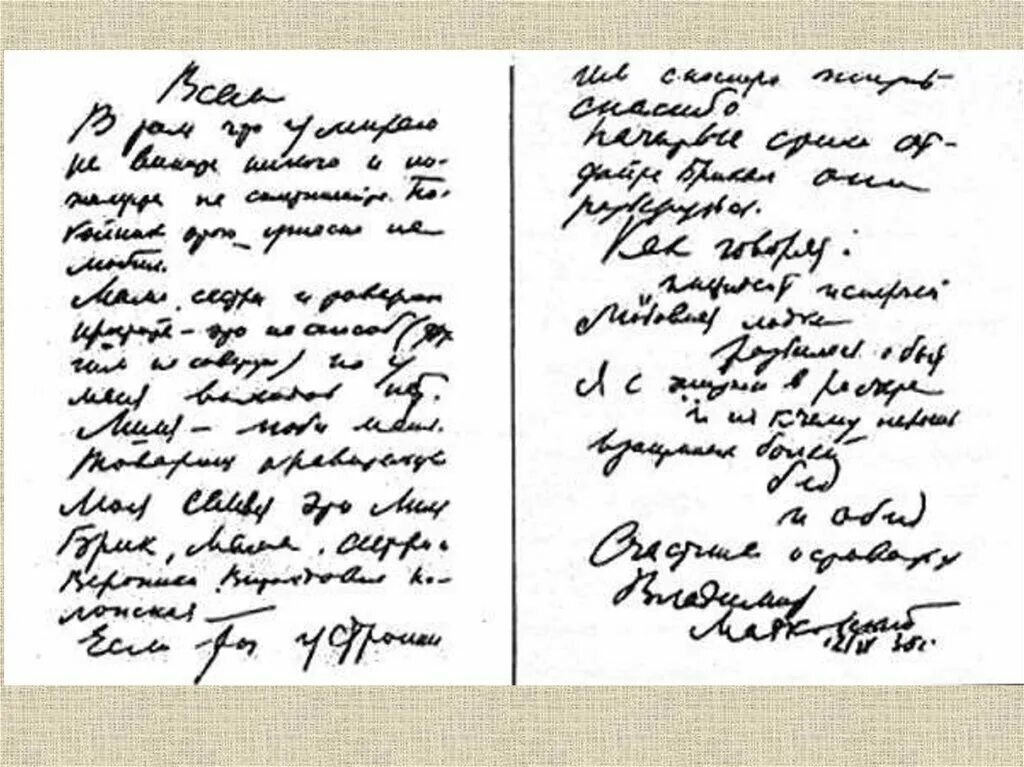 Всем
В том что умираю
не вините никого и по-
жалуйста не сплетничайте. По-
койник этого ужасно не
любил.
Мама, сестры и товарищи
простите – это не способ (дру
гим не советую) но у
меня выходов нет.
Лиля – люби меня.
Товарищ правительство
моя семья это Лиля
Брик, мама, сестры и
Вероника Витольдовна По-
лонская –
Если ты устроишь
им сносную жизнь
спасибо
Начатые стихи от-
дайте Брикам они
разберутся.
Как говорят:
инцидент исперчен
Любовная лодка
разбилась о быт
Я с жизнью в расчете
и не к чему перечень
взаимных болей
бед
и обид
Счастливо оставаться
Владимир
Маяковский
12/IV 30 г.